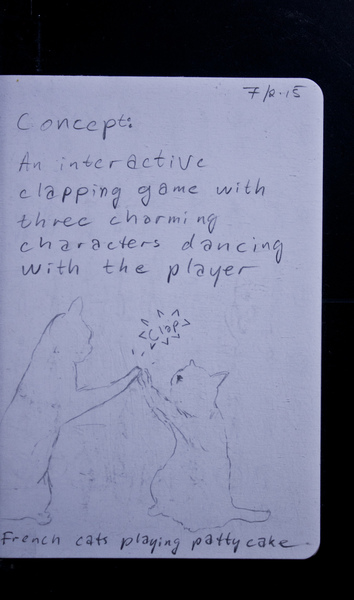 7/2.15
Concept:
An interactive
clapping game with
three charming
characters dancing
with the player
Clap
French cats playing patty cake